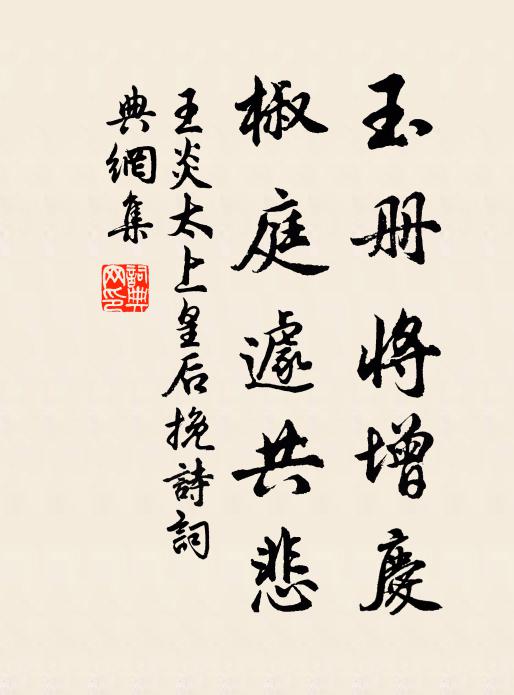 玉册將增慶
椒庭遽共悲
王炎太上皇后挽詩詞
典網集
詞典
网印